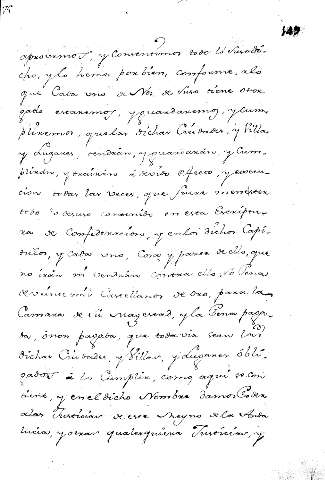 aprovamos, y Consentimos todo lo Susodi-
cho, y lo hemos por bien, conforme, a lo
que Cada uno de Nos de Suso tiene otor-
gado estaremos, y guardaremos, y Cum-
pliremos, que las dichas Ciudades, y Villas
y Lugares, tendrán, y guardarán, y Cum-
plirán, y traérán à devido efecto, y execu-
cion todas las veces, que fuere menester
todo lo de suso contenido en esta Escriptu-
ra de Confederacion, y en los dichos Capi-
tulos, y Cada uno, Cosa, y parte de ello, que
no irán ni vendrán contra ello, sò Pena
de veinte mil Castellanos de oro, para la
Camara de su Magestad, y la Pena paga-
da, ò non pagada, que todavia sean las
dichas Ciudades, y Villas, y Lugares obli-
gados à lo Cumplir, como aqui se con-
tiene, y en el dicho Nombre damos Poder
a las Justicias de este Reyno de la Anda
lucia, y otras qualesquiera Justicias, y